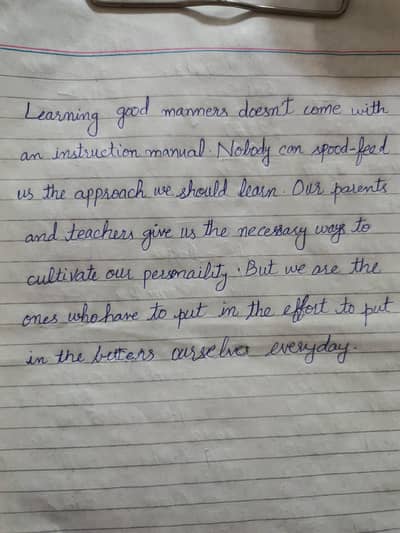 Learning good manners doesn't come with
an instruction manual. Nobody can spood-feed
us the approach we should learn. Our parents
and teachers give us the necessary ways to
cultivate our personaility. But we are the
ones who have to put in the effort to put
in the betters ourselves everyday.